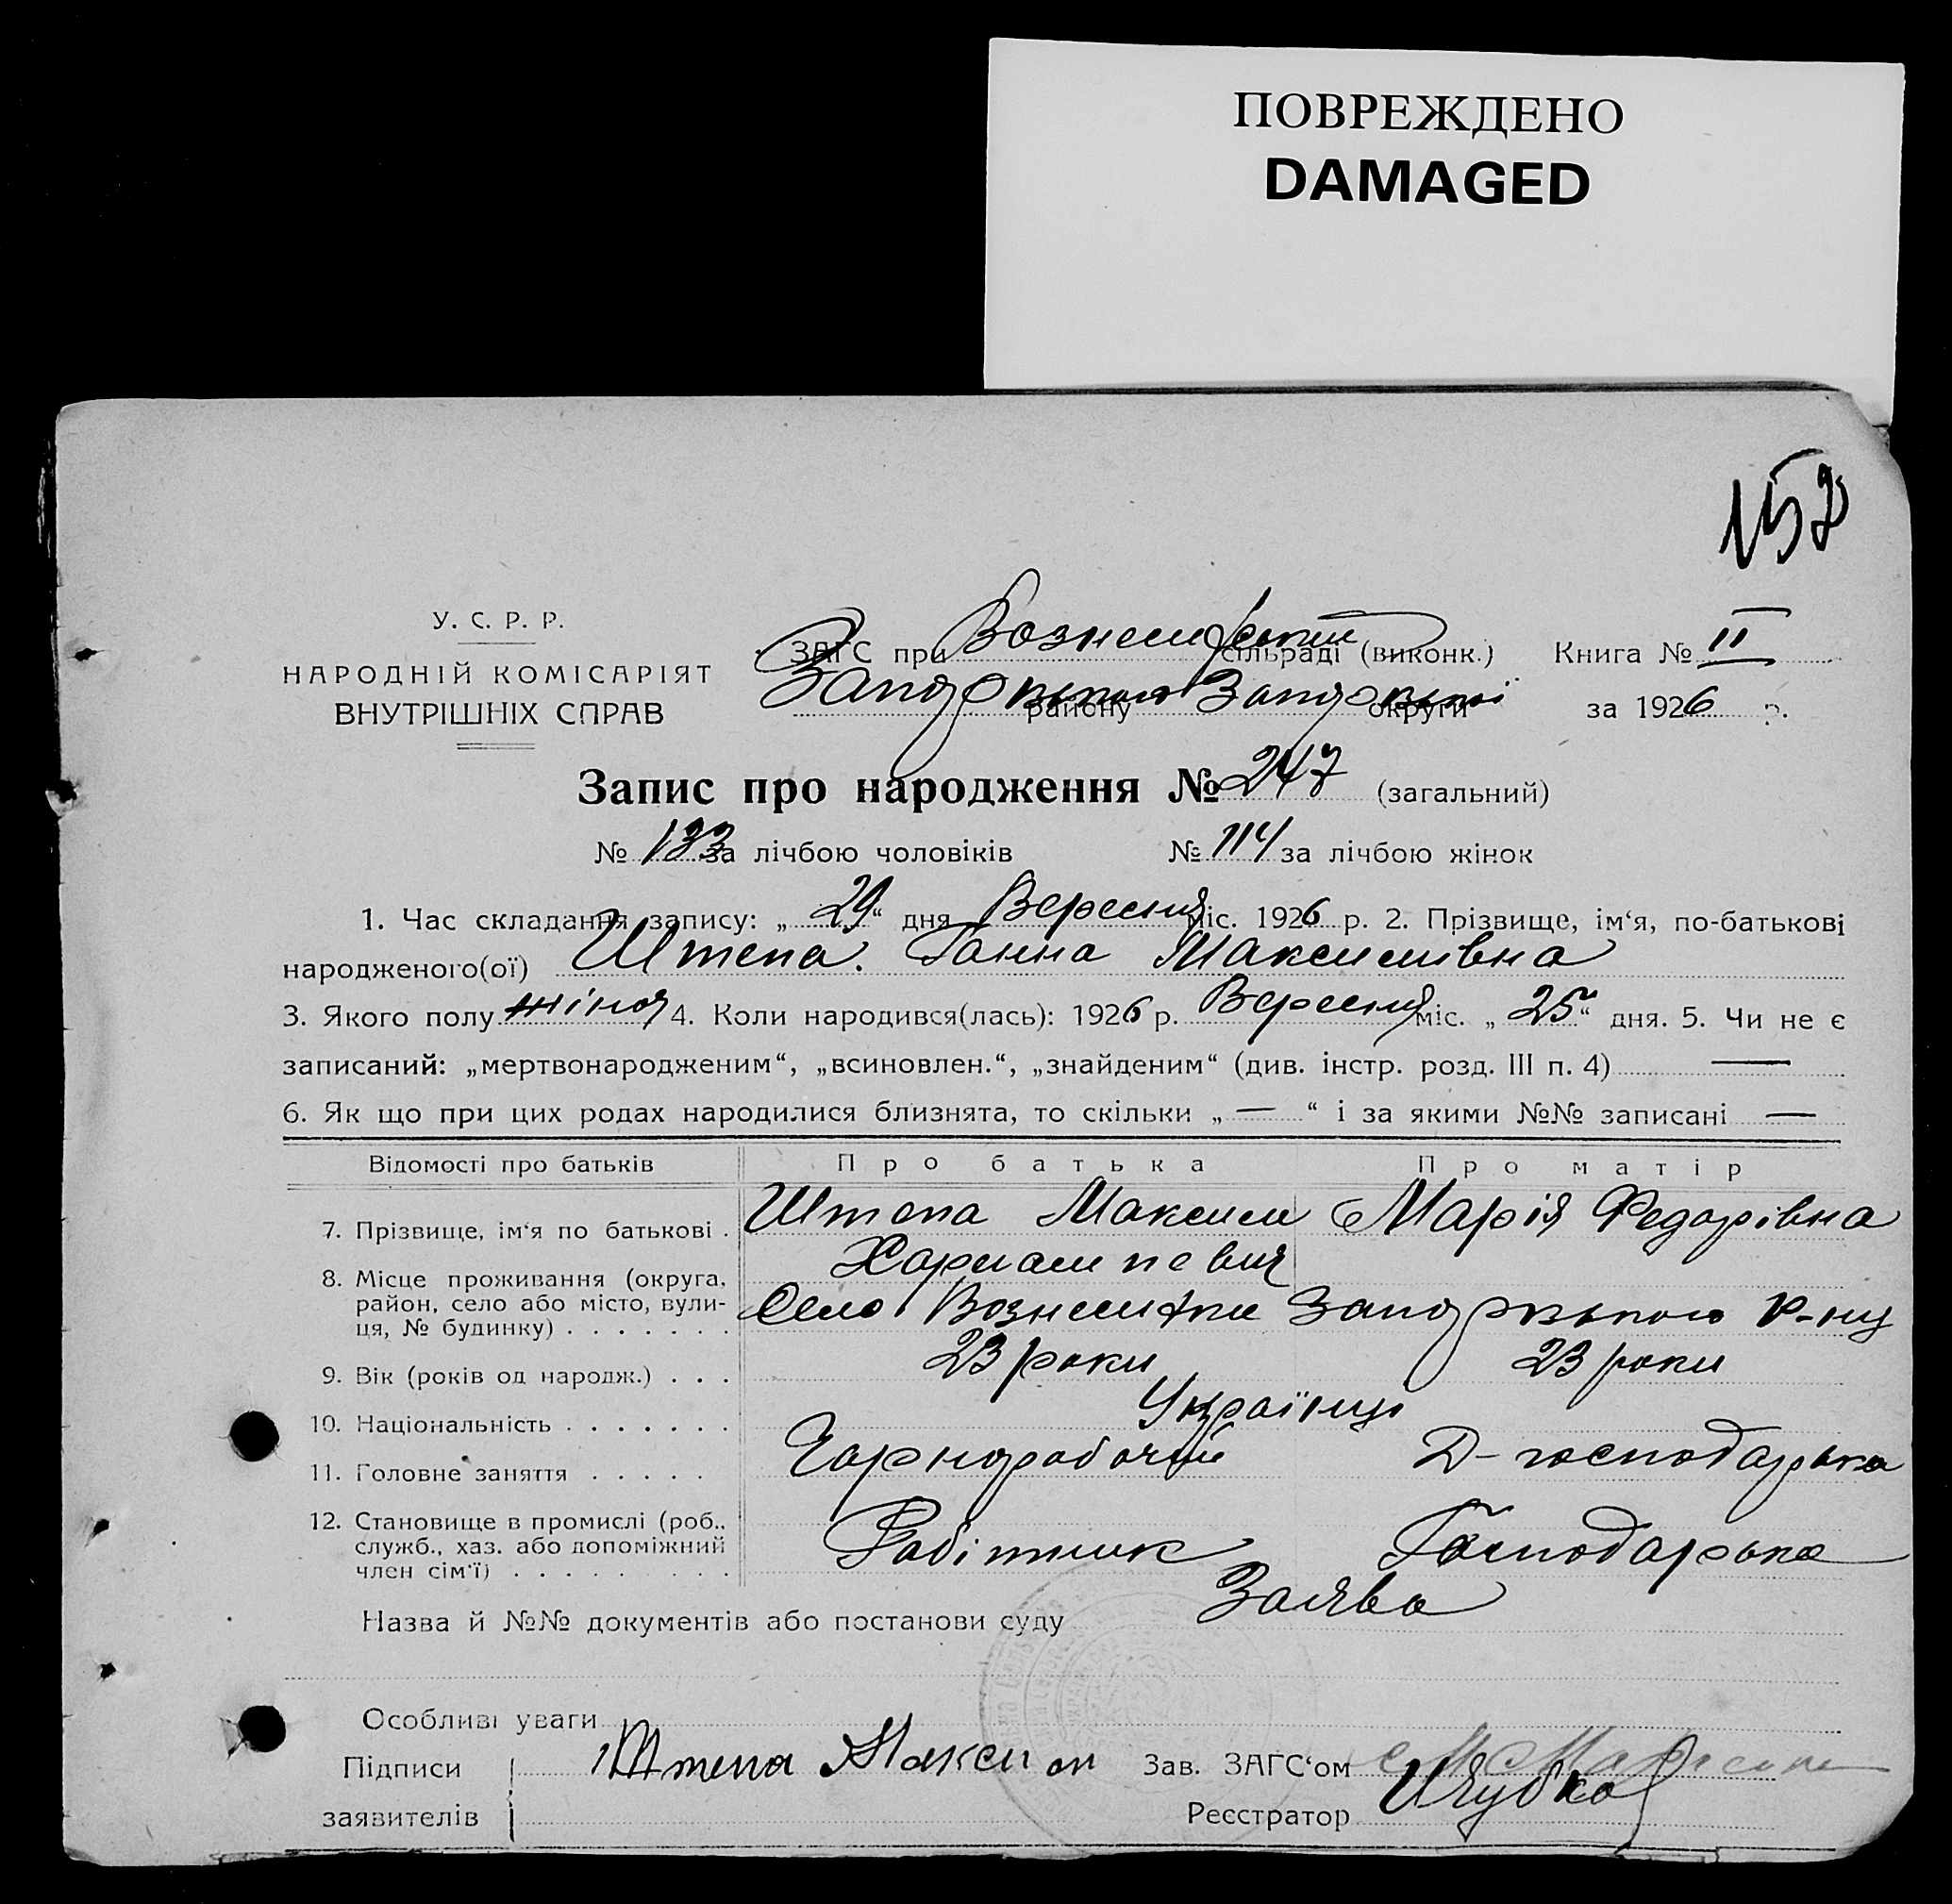 ПОВРЕЖДЕНО
DAMAGED
152
У. С. Р. Р.
НАРОДНІЙ КОМІСАРІЯТ
ВНУТРІШНІХ СПРАВ
ЗАГС при Вознесенській сільраді (виконк.) Книга № II
Запорізького району Запорізької округи за 1926 р.
Запис про народження № 247 (загальний)
№ 133 за лічбою чоловіків № 114 за лічбою жінок
1. Час складання запису: „29“ дня Вересня міс. 1926 р. 2. Прізвище, ім‘я, по-батькові
народженого(ої) Штепа. Ганна Максимівна
3. Якого полу жіноч 4. Коли народився(лась): 1926 р. Вересня міс. „25“ дня. 5. Чи не є
записаний: „мертвонародженим“, „всиновлен.“, „знайденим“ (див. інстр. розд. III п. 4) —
6. Як що при цих родах народилися близнята, то скільки „—“ і за якими №№ записані —
Відомості про батьків Про батька Про матір
7. Прізвище, ім‘я по батькові . Штепа Максим Марія Федорівна
Харлампевич
8. Місце проживання (округа,
район, село або місто, вули-
ця, № будинку) . . . . . . . Село Вознесенка Запорізького р-ну
9. Вік (років од народж.) . . . 23 роки 23 роки
10. Національність . . . . . . . Українці
11. Головне заняття . . . . . Чорноробочий Д-господарька
12. Становище в промислі (роб.,
служб., хаз. або допоміжний
член сім‘ї) . . . . . . . . . Робітник Господарька
Назва й №№ документів або постанови суду Заява
Особливі уваги
Підписи Штепа Максим Зав. ЗАГС‘ом
заявителів Реєстратор